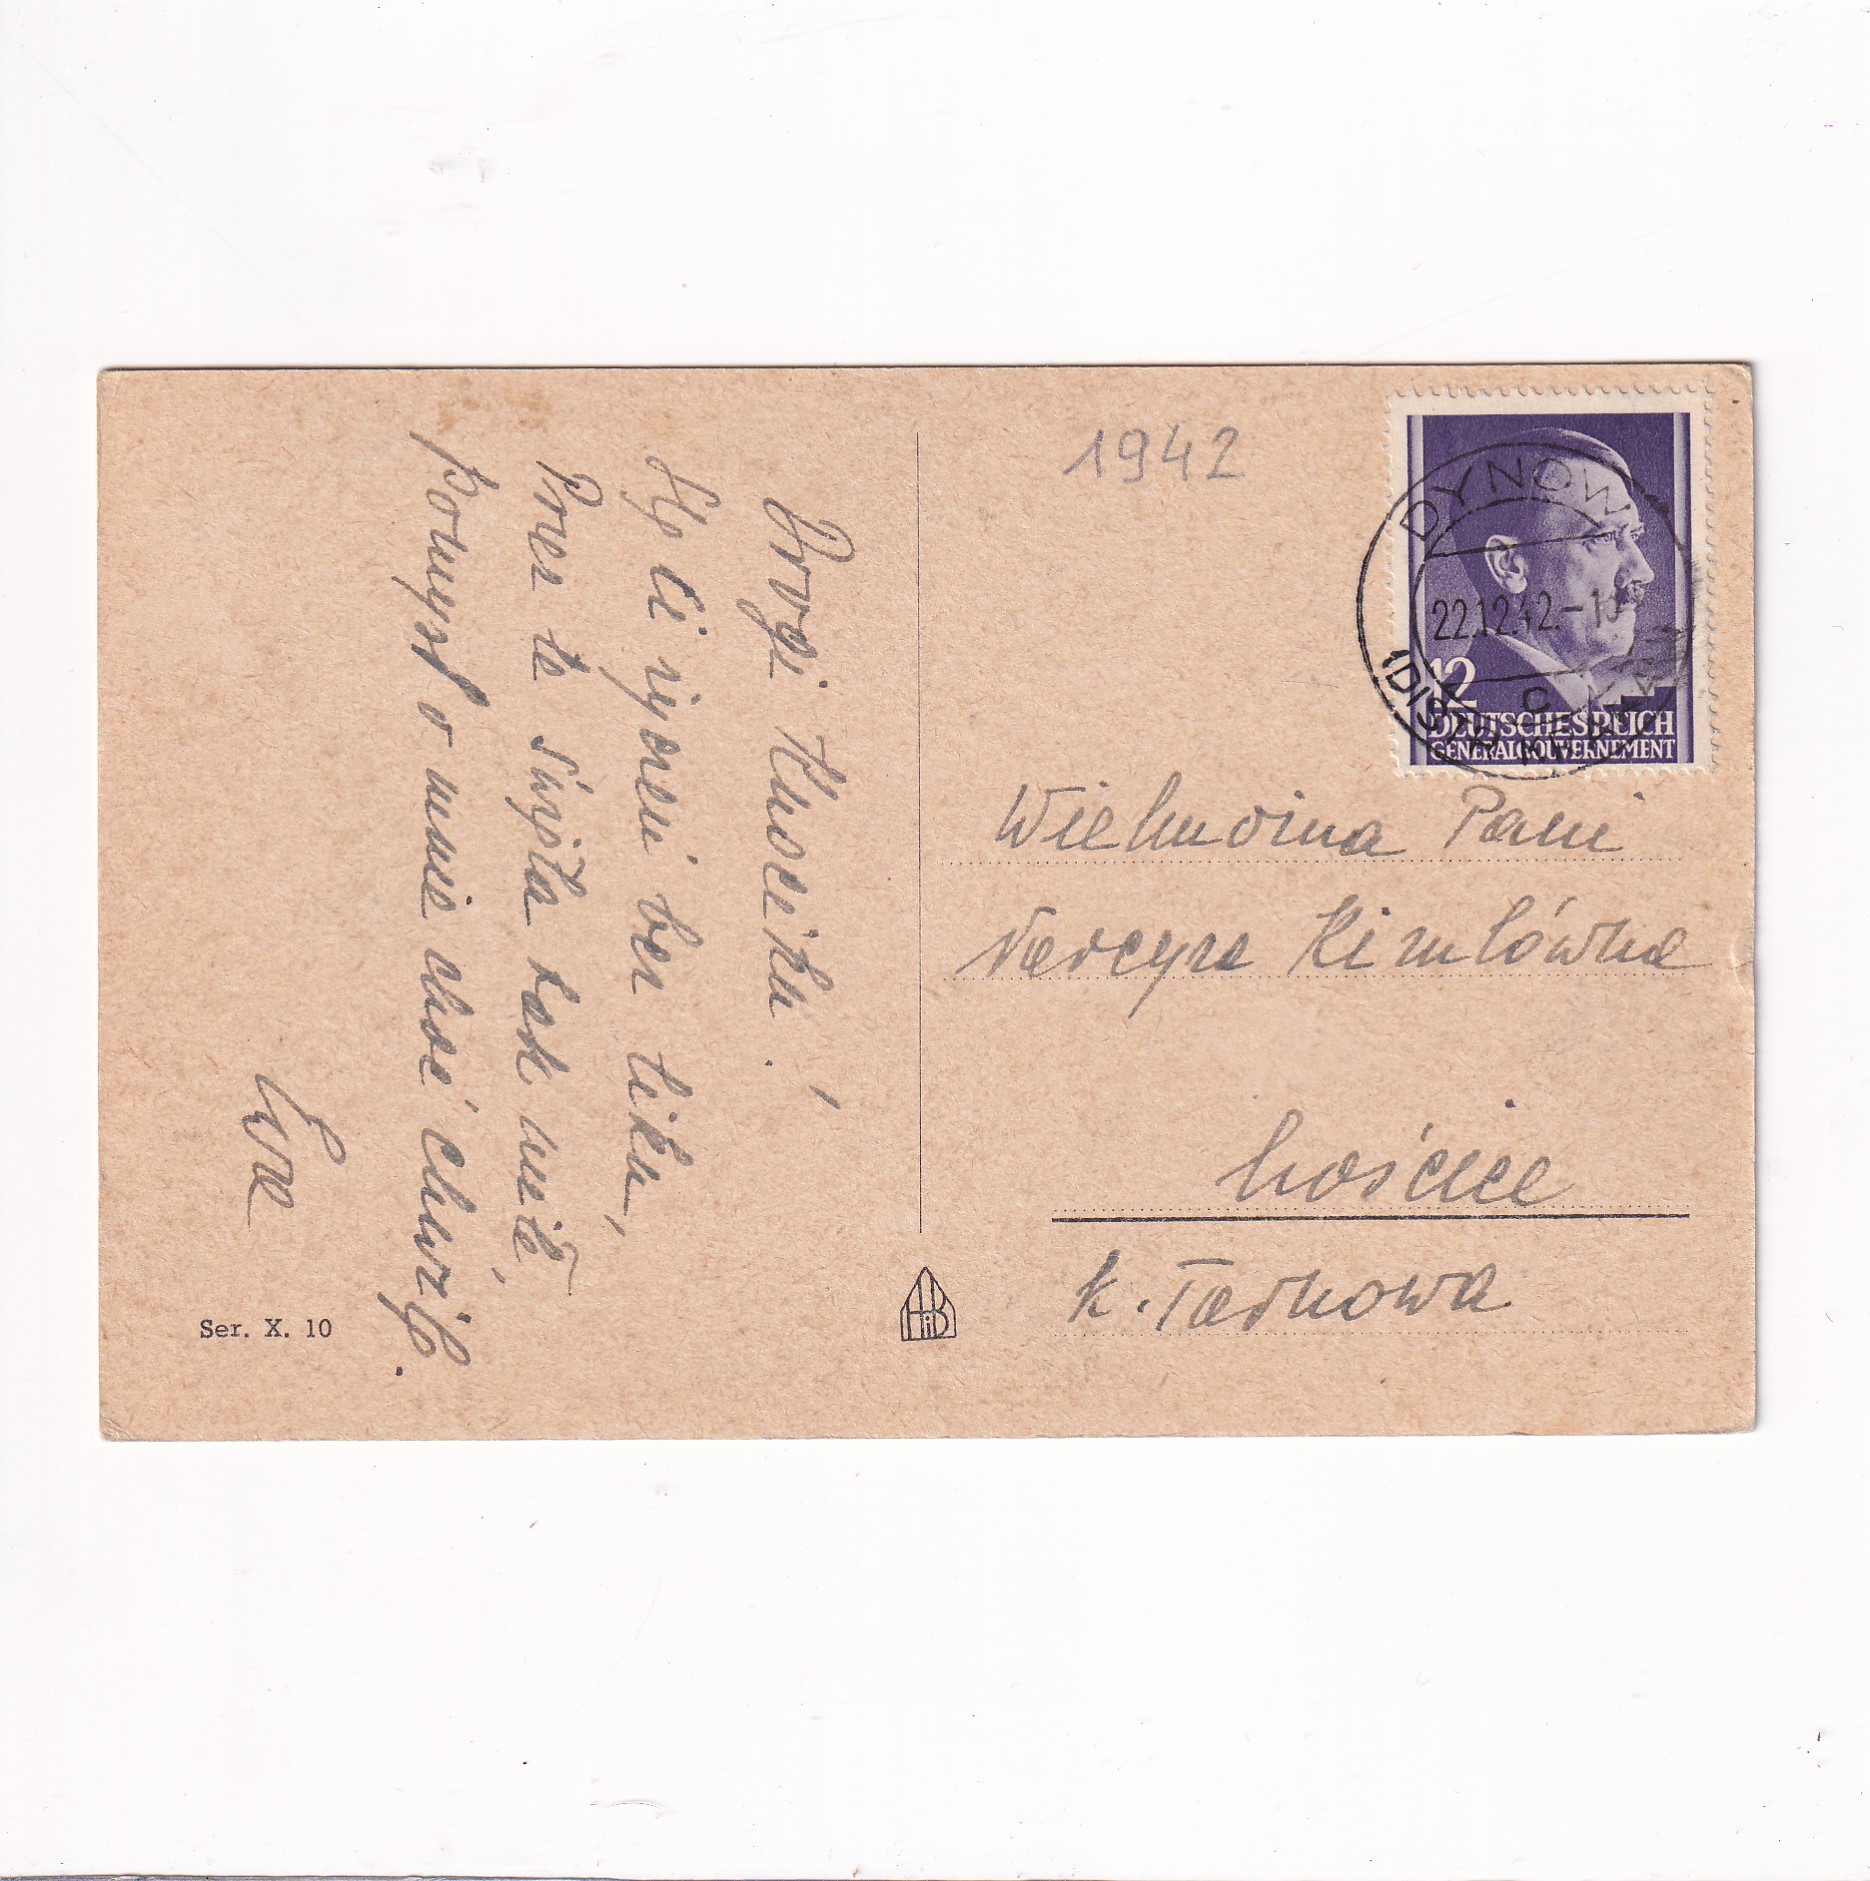 Drogi Knociku!
Żyj Ci życeń bez liku,
Przez te Święta tak mile,
Pomyśl o mnie choć chwilę.
Ewa
Ser. X. 10
HiB
1942
DYNOW
22.12.42.-10
C
(DISTR. KRAKAU)
12
DEUTSCHES REICH
GENERALGOUVERNEMENT
Wielmożna Pani
Narcyza Kimlówna
Łośćice
k. Tarnowa